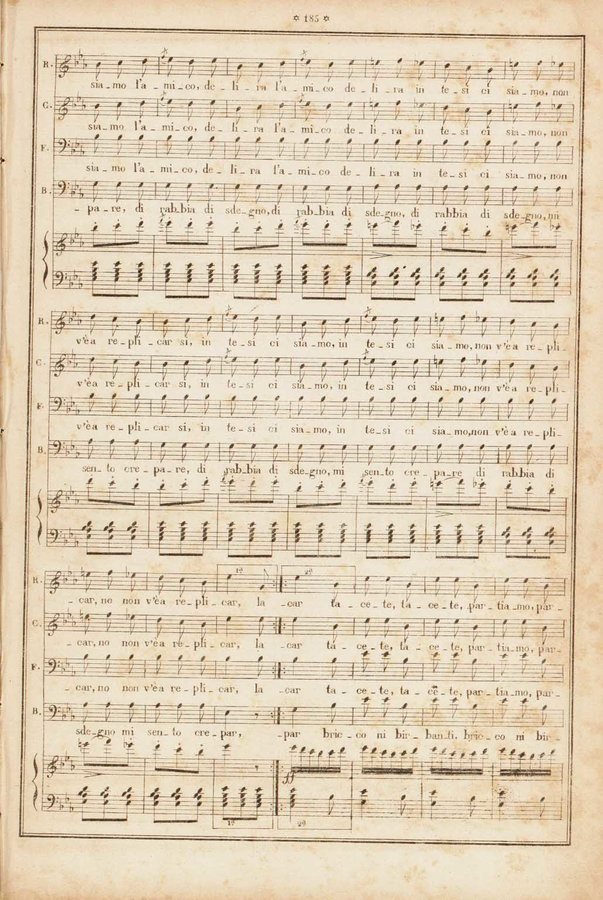 ✡ 185 ✡
R. sia_mo l'a_mi_co, de_li_ra l'a_mi_co de_li_ra in te_si ci sia_mo, non
C. sia_mo l'a_mi_co, de_li_ra l'a_mi_co de_li_ra in te_si ci sia_mo, non
F. sia_mo l'a_mi_co, de_li_ra l'a_mi_co de_li_ra in te_si ci sia_mo, non
B. _pa_re, di rab_bia di sde_gno, di rab_bia di sde_gno, di rabbia di sde_gno, mi
R. v'è a re_pli_car si, in te_si ci sia_mo, in te_si ci sia_mo, non v'è a re_pli_
C. v'è a re_pli_car si, in te_si ci sia_mo, in te_si ci sia_mo, non v'è a re_pli_
F. v'è a re_pli_car si, in te_si ci sia_mo, in te_si ci sia_mo, non v'è a re_pli_
B. sen_to cre_pa_re, di rab_bia di sde_gno, mi sen_to cre_pa_re di rab_bia di
1ª 2ª
R. _car, no non v'è a re_pli_car, la _car ta_ce_te, ta_ce_te, par_tia_mo, par_
C. _car, no non v'è a re_pli_car, la _car ta_ce_te, ta_ce_te, par_tia_mo, par_
F. _car, no non v'è a re_pli_car, la _car ta_ce_te, ta_ce_te, par_tia_mo, par_
B. sde_gno mi sen_to cre_par, _par bric_co ni bir_banti. bric_co ni bir_
ff
1ª 2ª